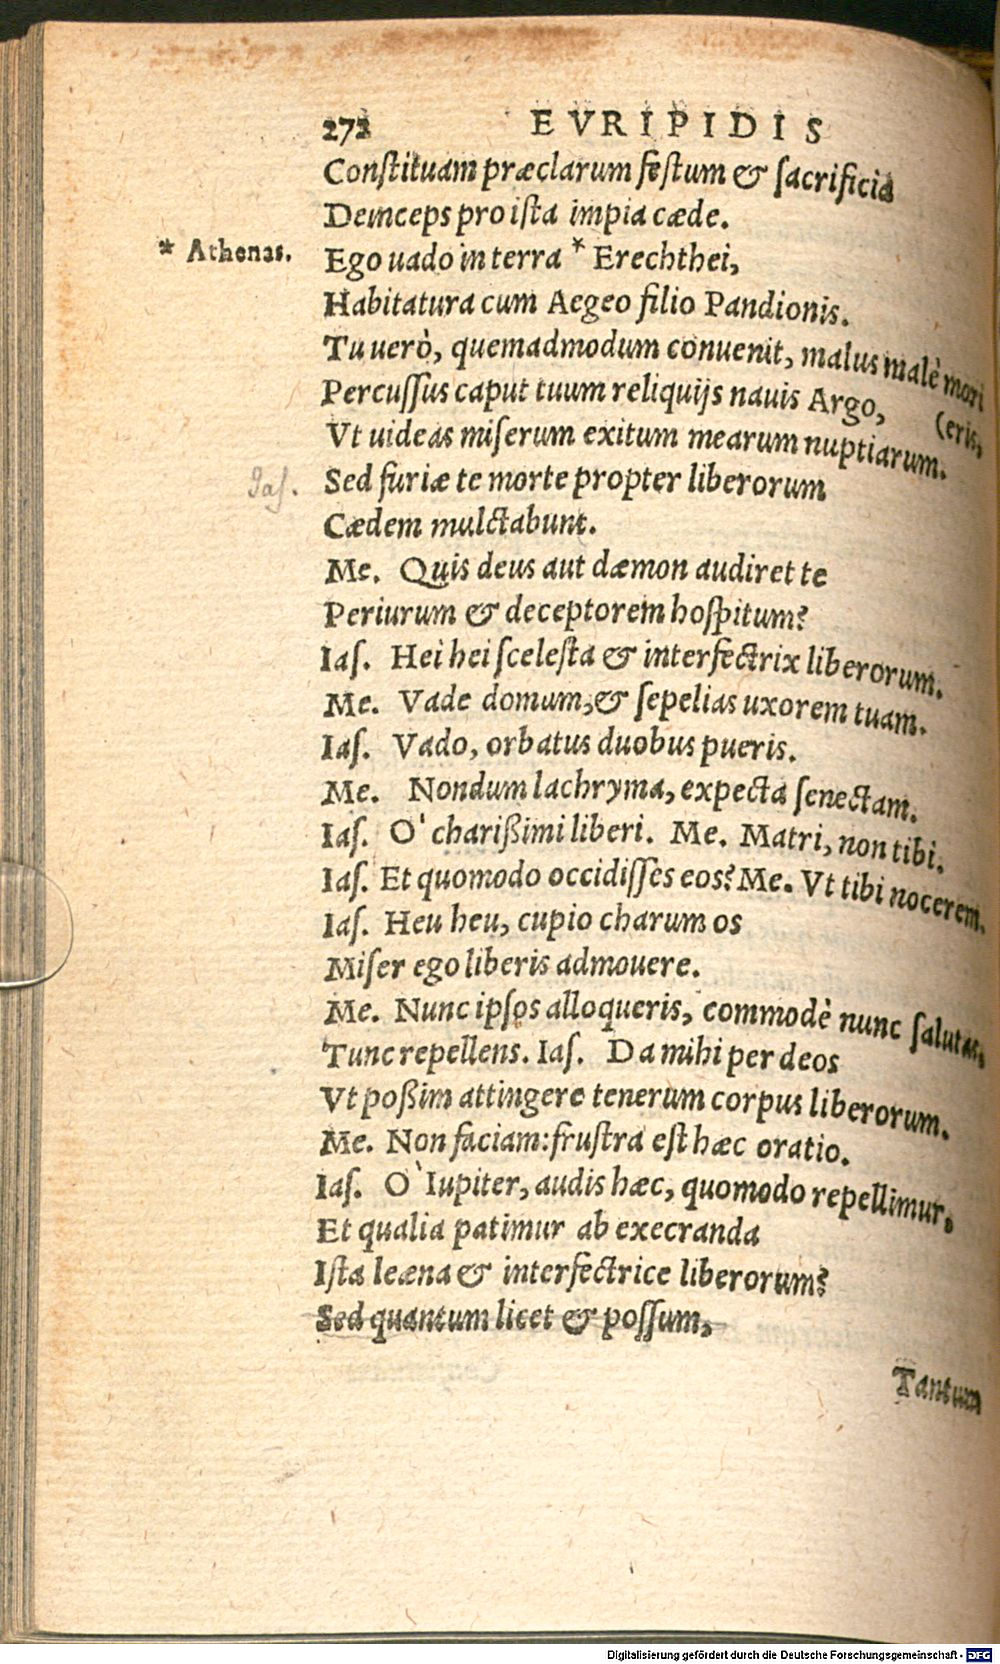 272 EVRIPIDIS
Constituam præclarum festum & sacrificia
Deinceps pro ista impia cæde.
* Athenas. Ego uado in terra * Erechthei,
Habitatura cum Aegeo filio Pandionis.
Tu uerò, quemadmodum conuenit, malus malè mori
Percussus caput tuum reliquijs nauis Argo, (eris,
Vt uideas miserum exitum mearum nuptiarum.
Ias. Sed furiæ te morte propter liberorum
Cædem mulctabunt.
Me. Quis deus aut dæmon audiret te
Periurum & deceptorem hospitum?
Ias. Hei hei scelesta & interfectrix liberorum.
Me. Vade domum, & sepelias uxorem tuam.
Ias. Vado, orbatus duobus pueris.
Me. Nondum lachryma, expecta senectam.
Ias. O' charißimi liberi. Me. Matri, non tibi.
Ias. Et quomodo occidisses eos? Me. Vt tibi nocerem.
Ias. Heu heu, cupio charum os
Miser ego liberis admouere.
Me. Nunc ipsos alloqueris, commodè nunc salutas,
Tunc repellens. Ias. Da mihi per deos
Vt poßim attingere tenerum corpus liberorum.
Me. Non faciam: frustra est hæc oratio.
Ias. O' Iupiter, audis hæc, quomodo repellimur,
Et qualia patimur ab execranda
Ista leæna & interfectrice liberorum?
Sed quantum licet & possum,
Tantum
Digitalisierung gefördert durch die Deutsche Forschungsgemeinschaft - DFG